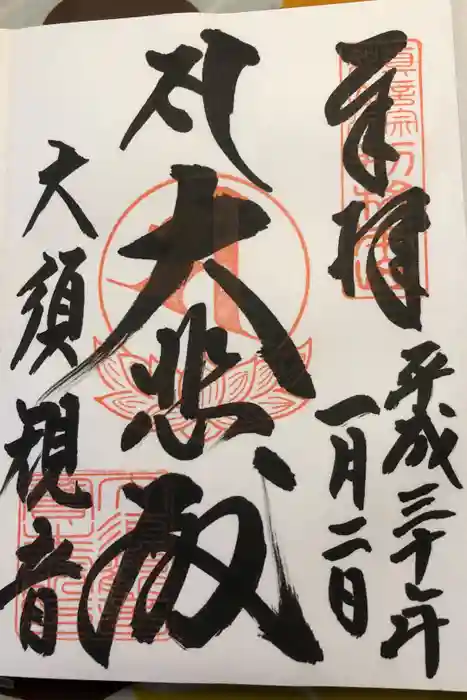 奉拝
平成三十年
一月二日
大悲殿
大須観音